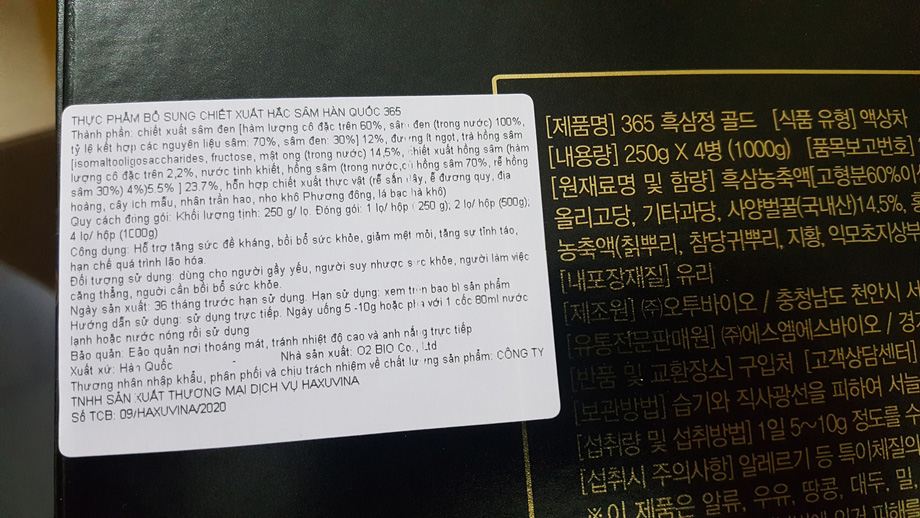 THỰC PHẨM BỔ SUNG CHIẾT XUẤT HẮC SÂM HÀN QUỐC 365
Thành phần: chiết xuất sâm đen [hàm lượng cô đặc trên 60%, sâm đen (trong nước) 100%,
tỷ lệ kết hợp các nguyên liệu sâm: 70%, sâm đen: 30%] 12%, đường ít ngọt, trà hồng sâm
[isomaltooligosaccharides, fructose, mật ong (trong nước) 14,5%, chiết xuất hồng sâm (hàm
lượng cô đặc trên 2,2%, nước tinh khiết, hồng sâm (trong nước, củ hồng sâm 70%, rễ hồng
sâm 30%) 4%)5.5% ] 23.7%, hỗn hợp chiết xuất thực vật (rễ sắn dây, rễ đương quy, địa
hoàng, cây ích mẫu, nhân trần hao, nho khô Phương đông, lá bạc hà khô)
Quy cách đóng gói: Khối lượng tịnh: 250 g/ lọ. Đóng gói: 1 lọ/ hộp ( 250 g); 2 lọ/ hộp (500g);
4 lọ/ hộp (1000g)
Công dụng: Hỗ trợ tăng sức đề kháng, bồi bổ sức khỏe, giảm mệt mỏi, tăng sự tỉnh táo,
hạn chế quá trình lão hóa.
Đối tượng sử dụng: dùng cho người gầy yếu, người suy nhược sức khỏe, người làm việc
căng thẳng, người cần bồi bổ sức khỏe.
Ngày sản xuất: 36 tháng trước hạn sử dụng. Hạn sử dụng: xem trên bao bì sản phẩm
Hướng dẫn sử dụng: sử dụng trực tiếp. Ngày uống 5 -10g hoặc pha với 1 cốc 80ml nước
lạnh hoặc nước nóng rồi sử dụng
Bảo quản: Bảo quản nơi thoáng mát, tránh nhiệt độ cao và anh nắng trực tiếp
Xuất xứ: Hàn Quốc - Nhà sản xuất: O2 BIO Co., Ltd
Thương nhân nhập khẩu, phân phối và chịu trách nhiệm về chất lượng sản phẩm: CÔNG TY
TNHH SẢN XUẤT THƯƠNG MẠI DỊCH VỤ HAXUVINA
Số TCB: 09/HAXUVINA/2020
[제품명] 365 흑삼정 골드 [식품 유형] 액상차
[내용량] 250g X 4병 (1000g) [품목보고번호]
[원재료명 및 함량] 흑삼농축액[고형분60%이
올리고당, 기타과당, 사양벌꿀(국내산)14.5%,
농축액(칡뿌리, 참당귀뿌리, 지황, 익모초지상부
[내포장재질] 유리
[제조원] (주)오투바이오 / 충청남도 천안시 서
[유통전문판매원] (주)에스엠에스바이오 / 경
[반품 및 교환장소] 구입처 [고객상담센터]
[보관방법] 습기와 직사광선을 피하여 서늘
[섭취량 및 섭취방법] 1일 5~10g 정도를 수
[섭취시 주의사항] 알레르기 등 특이체질의
※이 제품은 알류, 우유, 땅콩, 대두, 밀,